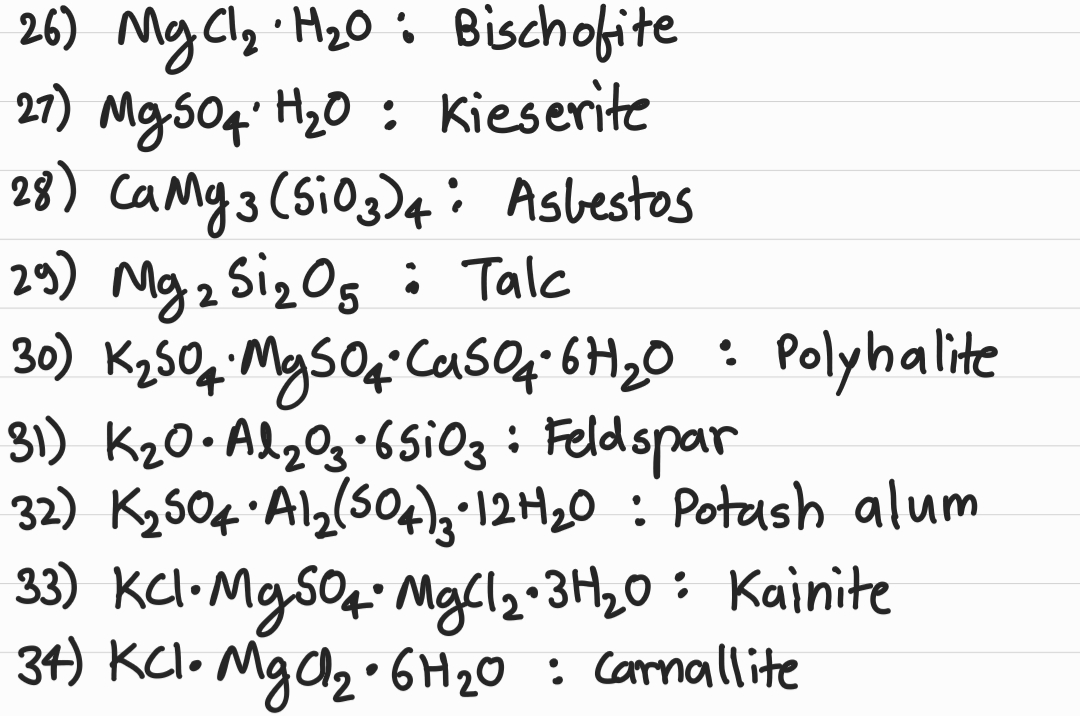 26) MgCl₂·H₂O : Bischofite
27) MgSO₄·H₂O : Kieserite
28) CaMg₃(SiO₃)₄ : Asbestos
29) Mg₂Si₂O₅ : Talc
30) K₂SO₄·MgSO₄·CaSO₄·6H₂O : Polyhalite
31) K₂O·Al₂O₃·6SiO₃ : Feldspar
32) K₂SO₄·Al₂(SO₄)₃·12H₂O : Potash alum
33) KCl·MgSO₄·MgCl₂·3H₂O : Kainite
34) KCl·MgCl₂·6H₂O : Carnallite